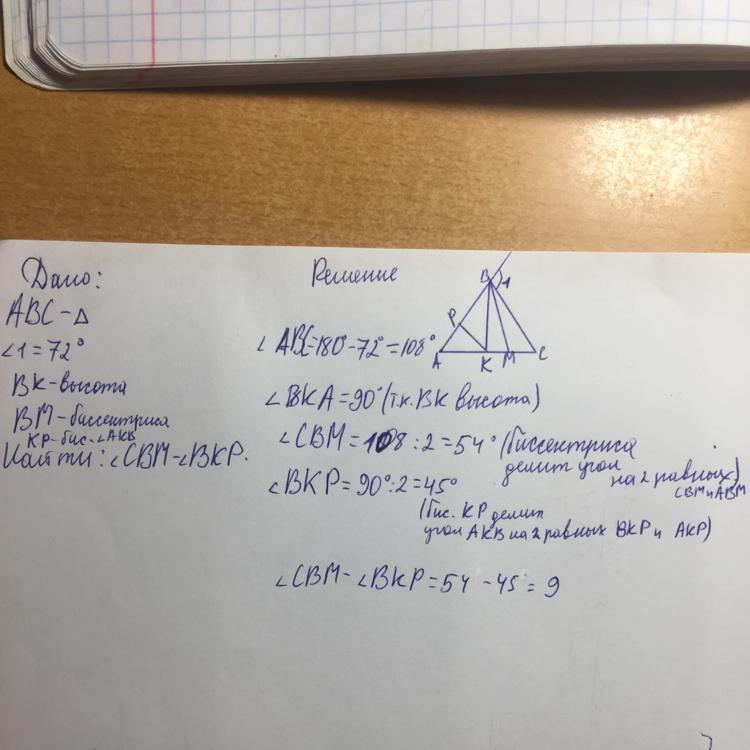 Дано:
ABC - Δ
∠1 = 72°
BK - высота
BM - биссектриса
KP - бис. ∠AKB
Найти: ∠CBM - ∠BKP.
Решение
B 1
P
A K M C
∠ABC = 180° - 72° = 108°
∠BKA = 90° (т.к. BK высота)
∠CBM = 108 : 2 = 54° (биссектриса
делит угол
на 2 равных)
CBM и ABM
∠BKP = 90° : 2 = 45°
(бис. KP делит
угол AKB на 2 равных BKP и AKP)
∠CBM - ∠BKP = 54 - 45 = 9